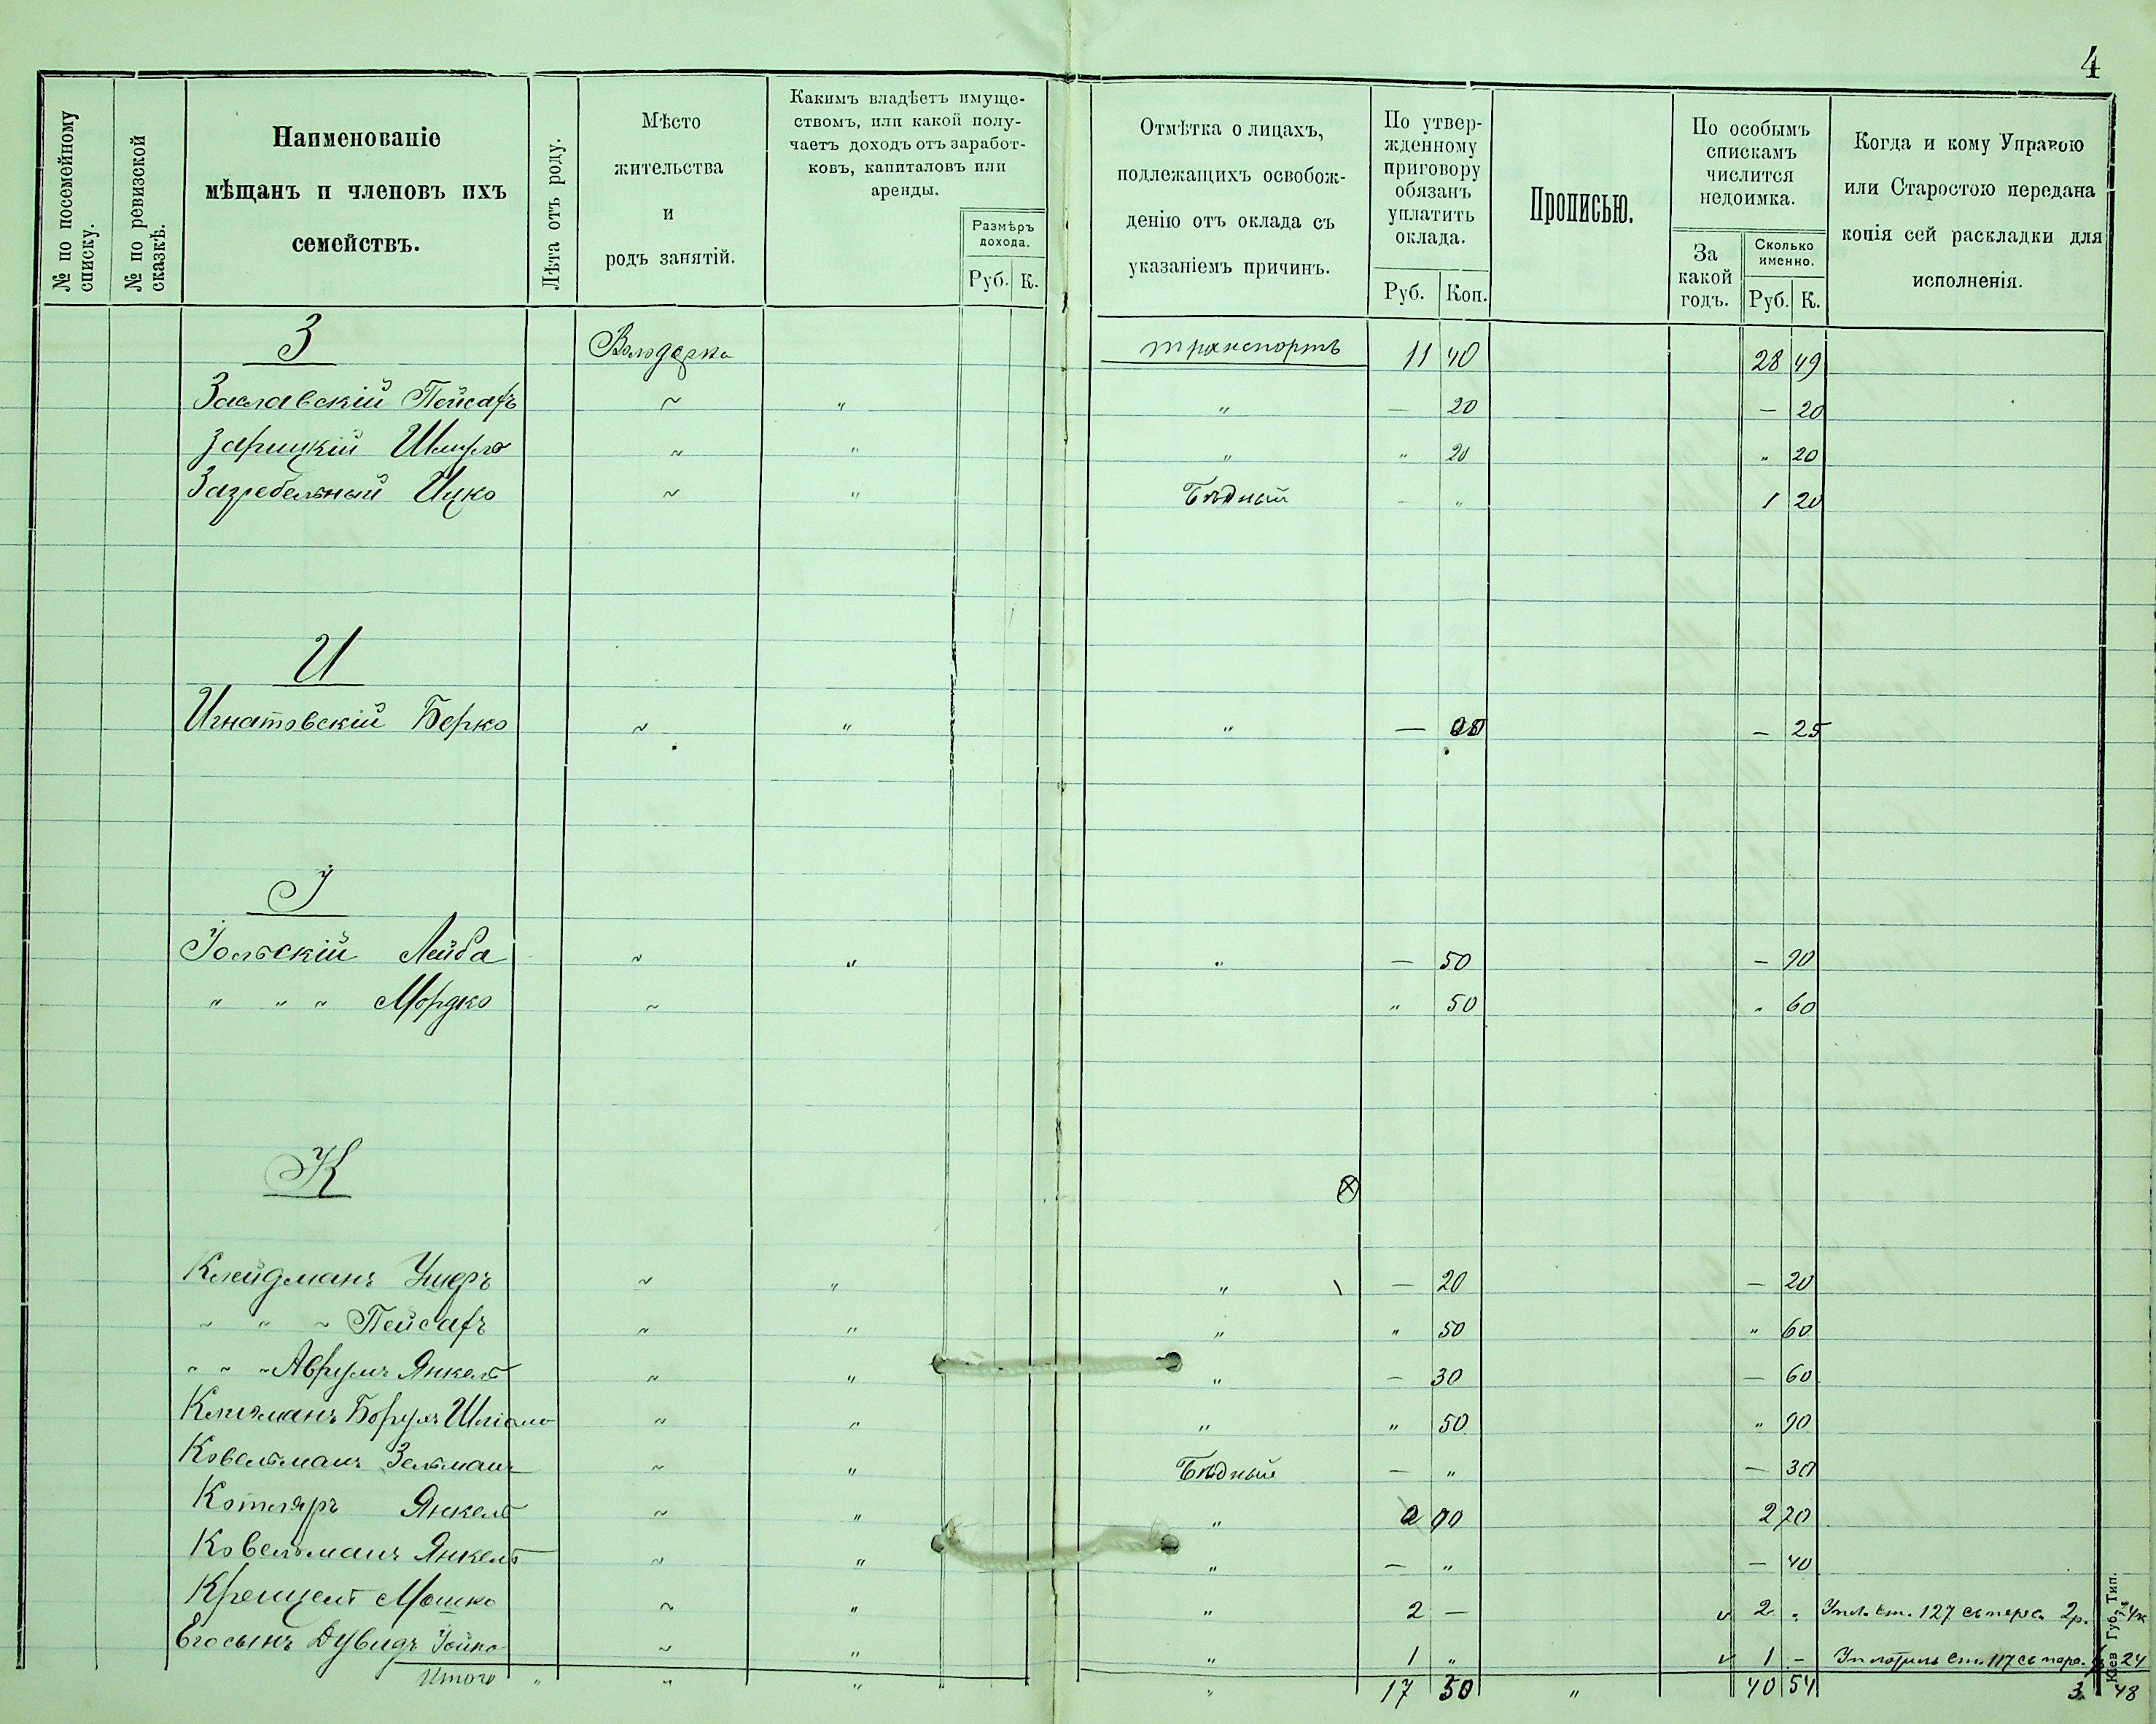 4
№ по посемейному списку.
№ по ревизской сказкѣ.
Наименованіе
мѣщанъ и членовъ ихъ
семействъ.
Лѣта отъ роду.
Мѣсто
жительства
и
родъ занятій.
Какимъ владѣетъ имуще-
ствомъ, или какой полу-
чаетъ доходъ отъ заработ-
ковъ, капиталовъ или
аренды.
Размѣръ
дохода.
Руб. К.
Отмѣтка о лицахъ,
подлежащихъ освобож-
денію отъ оклада съ
указаніемъ причинъ.
По утвер-
жденному
приговору
обязанъ
уплатить
оклада.
Руб. Коп.
Прописью.
По особымъ
спискамъ
числится
недоимка.
За
какой
годъ.
Сколько
именно.
Руб. К.
Когда и кому Управою
или Старостою передана
копія сей раскладки для
исполненія.
З Володарка транспортъ 11 40 28 49
Заславскій Пейсахъ ~ " " — 20 — 20
Зарицкій Шмуль ~ " " " 20 " 20
Загребельный Ицко ~ " Бѣдный — " 1 20
И
Игнатовскій Берко ~ " " — — 25
І
Іольскій Лейба ~ " " — 50 — 90
" " " Мордко ~ " 50 " 60
К
Клейдманъ Ушеръ ~ " " — 20 — 20
~ " ~ Пейсахъ " " " " 50 " 60
" " " Аврумъ Янкель " " " — 30 — 60
Борухъ " " " " 50 " 90
Ковельманъ Зельманъ ~ " Бѣдный — " — 30
Котляръ Янкель ~ " " 2 70
Ковельманъ Янкель ~ " " — " — 40
Мошко ~ " " 2 — v 2 " Упл. ст. 127 съ перес. 2р. 24к
Егосынъ Дувидъ Іойна ~ " " 1 " v 1 — Уплотилъ ст. 117 съ пере. 24
Итого " " " " 17 50 " 40 54 3 48
Кіев Губ. Тип.